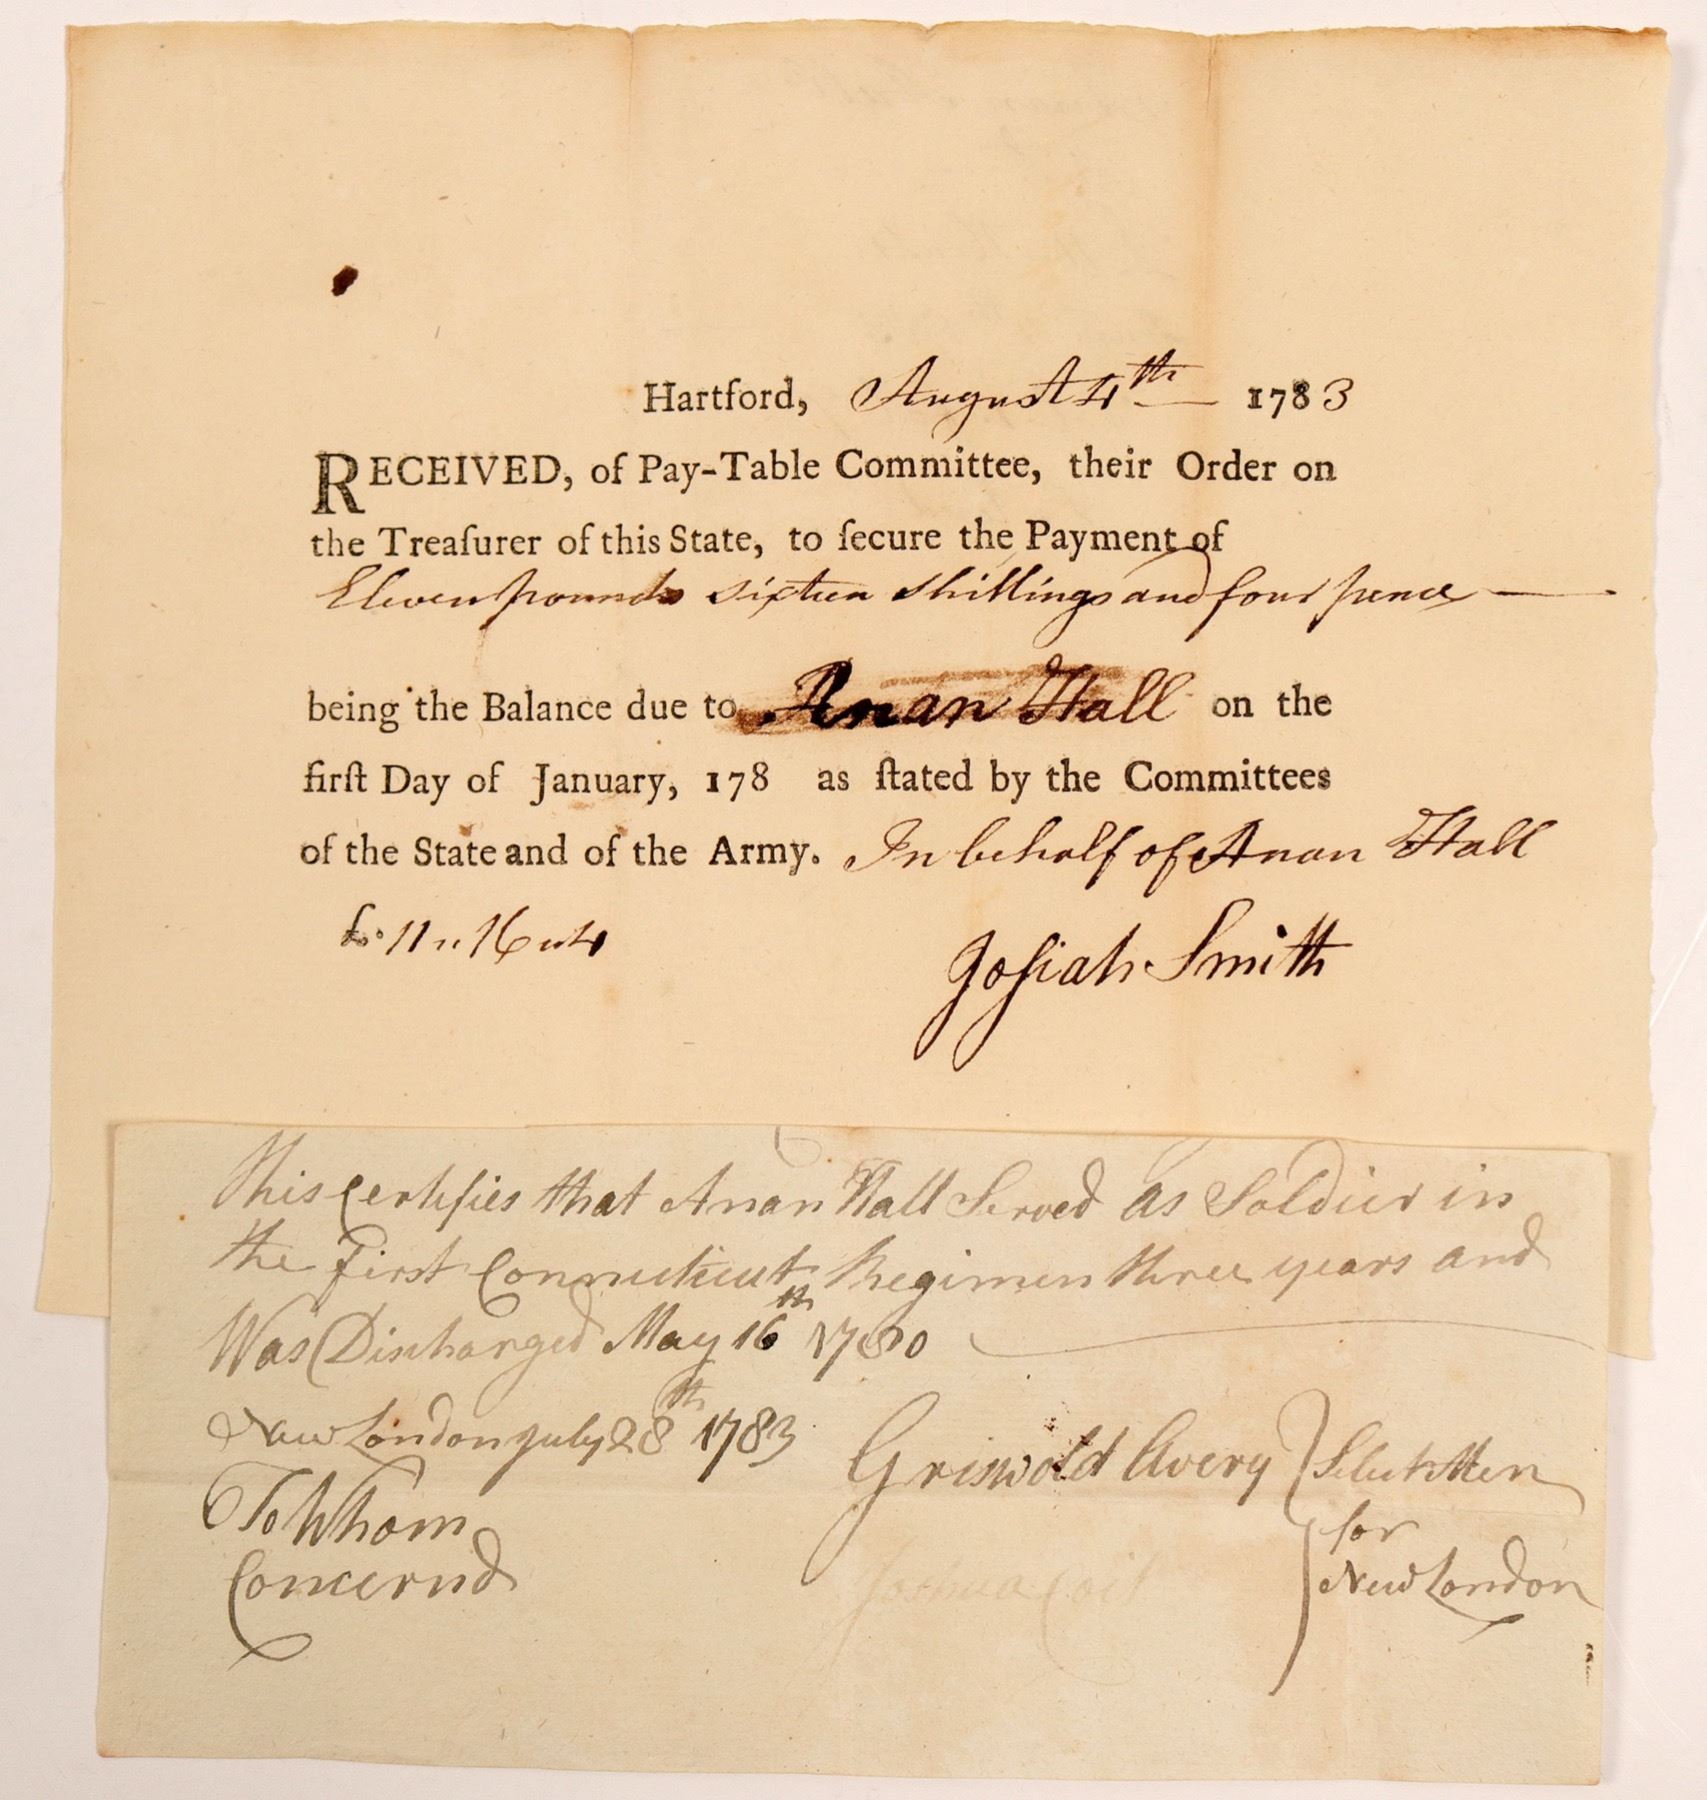 Hartford, August 4th — 1783
RECEIVED, of Pay-Table Committee, their Order on
the Treaſurer of this State, to ſecure the Payment of
Eleven pounds sixteen shillings and four pence —
being the Balance due to Anan Hall on the
firſt Day of January, 178 as ſtated by the Committees
of the State and of the Army. In behalf of Anan Hall
£. 11 " 16 " 4
Joſiah Smith
This Certifies that Anan Hall Served as Soldier in
the First Connecticut Regimen three years and
Was Discharged May 16th 1780
New London July 28th 1783
To Whom
Concernd
Griswold Avery } Select Men
for
Joshua Coit } New London